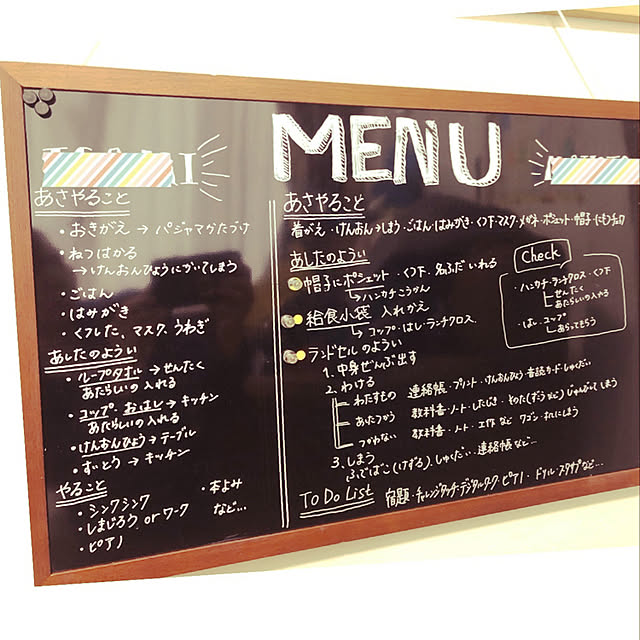 MENU
あさやること
・おきがえ → パジャマかたづけ
・ねつはかる
→けんおんひょうにかいてしまう
・ごはん
・はみがき
・くつした、マスク、うわぎ
あしたのようい
・ループタオル → せんたく
あたらしいの入れる
・コップ、おはし → キッチン
あたらしいの入れる
・けんおんひょう → テーブル
・すいとう → キッチン
やること
・シンクシンク
・しまじろう or ワーク
・ピアノ
・本よみ
など…
あさやること
着がえ・けんおん→しまう・ごはん・はみがき・くつ下・マスク・メガネ・ポシェット・帽子・にもつチェック
あしたのようい
帽子にポシェット・くつ下、名ふだ いれる
→ハンカチこうかん
給食小袋 入れかえ
→コップ・はし・ランチクロス
ランドセル のようい
1. 中身ぜんぶ出す
2. わける
わたすもの 連絡帳・プリント・けんおんひょう・音読カード・しゅくだい
あしたつかう 教科書・ノート・したじき・そのた(ずこうなど) じゅんばんにしまう
つかわない 教科書・ノート・工作 など ワゴン・たなにしまう
3. しまう
ふでばこ(けずる)、しゅくだい・連絡帳など…
To Do List 宿題・チャレンジタッチ・デジタルワーク・ピアノ・ドリル・スタサプなど…
Check
・ハンカチ・ランチクロス・くつ下
せんたく
あたらしいの入れる
・はし、コップ
あらってもらう